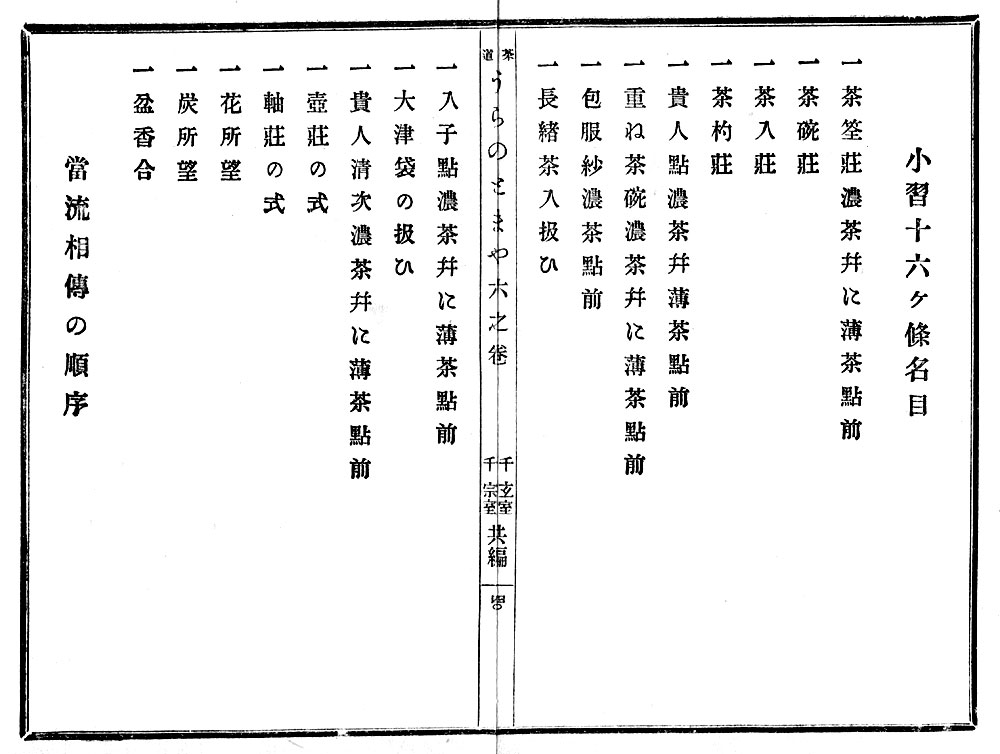 小習十六ヶ條名目
一茶筌莊濃茶幷に薄茶點前
一茶碗莊
一茶入莊
一茶杓莊
一貴人點濃茶幷薄茶點前
一重ね茶碗濃茶幷に薄茶點前
一包服紗濃茶點前
一長緖茶入扱ひ
茶道
うらのとまや六之卷
千玄室
千宗室
共編
一入子點濃茶幷に薄茶點前
一大津袋の扱ひ
一貴人清次濃茶幷に薄茶點前
一壺莊の式
一軸莊の式
一花所望
一炭所望
一盆香合
當流相傳の順序